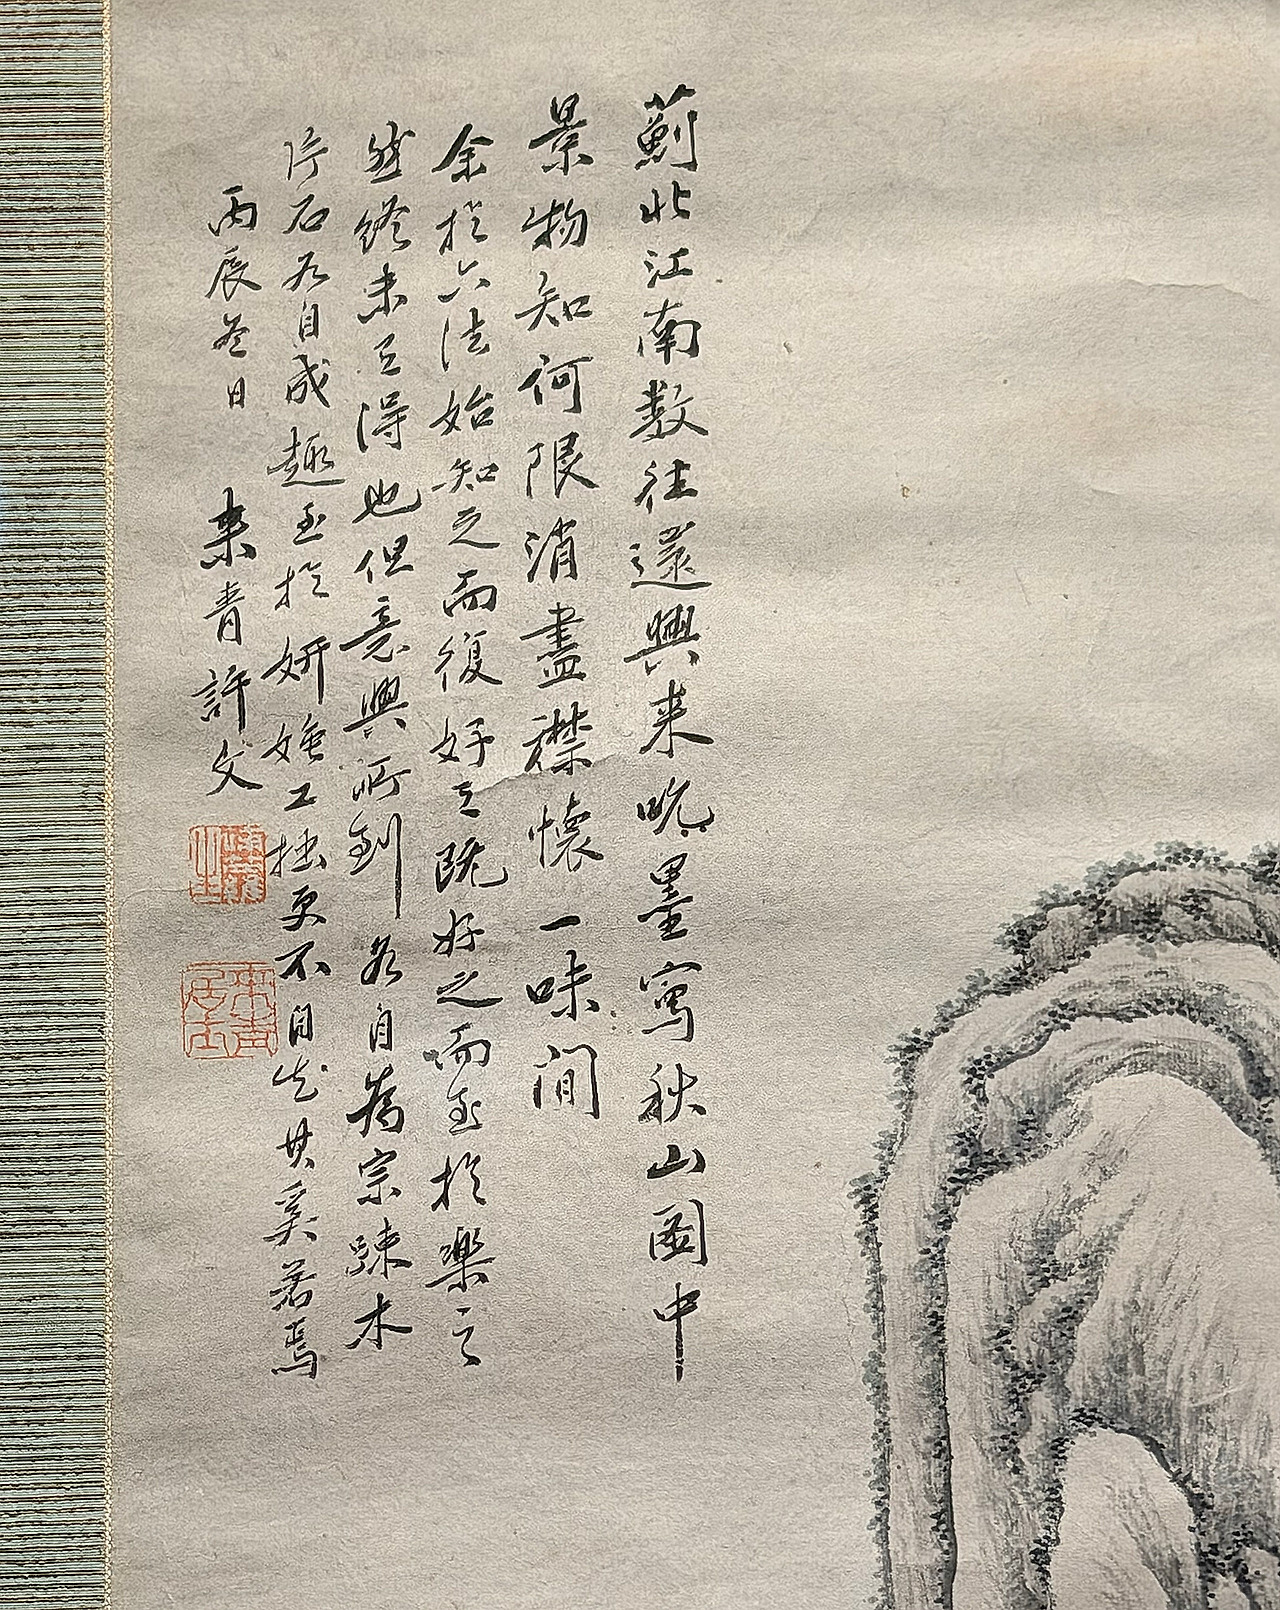 薊北江南数往還興来吮墨寫秋山圖中
景物知何限消盡襟懷一味間
余於六法始知之而復好之既好之而至於樂之
然終未之得也但意興所到各自為宗踈木
片石各自成趣至於妍媸工拙更不自知其奚若焉
丙辰冬日 来青許